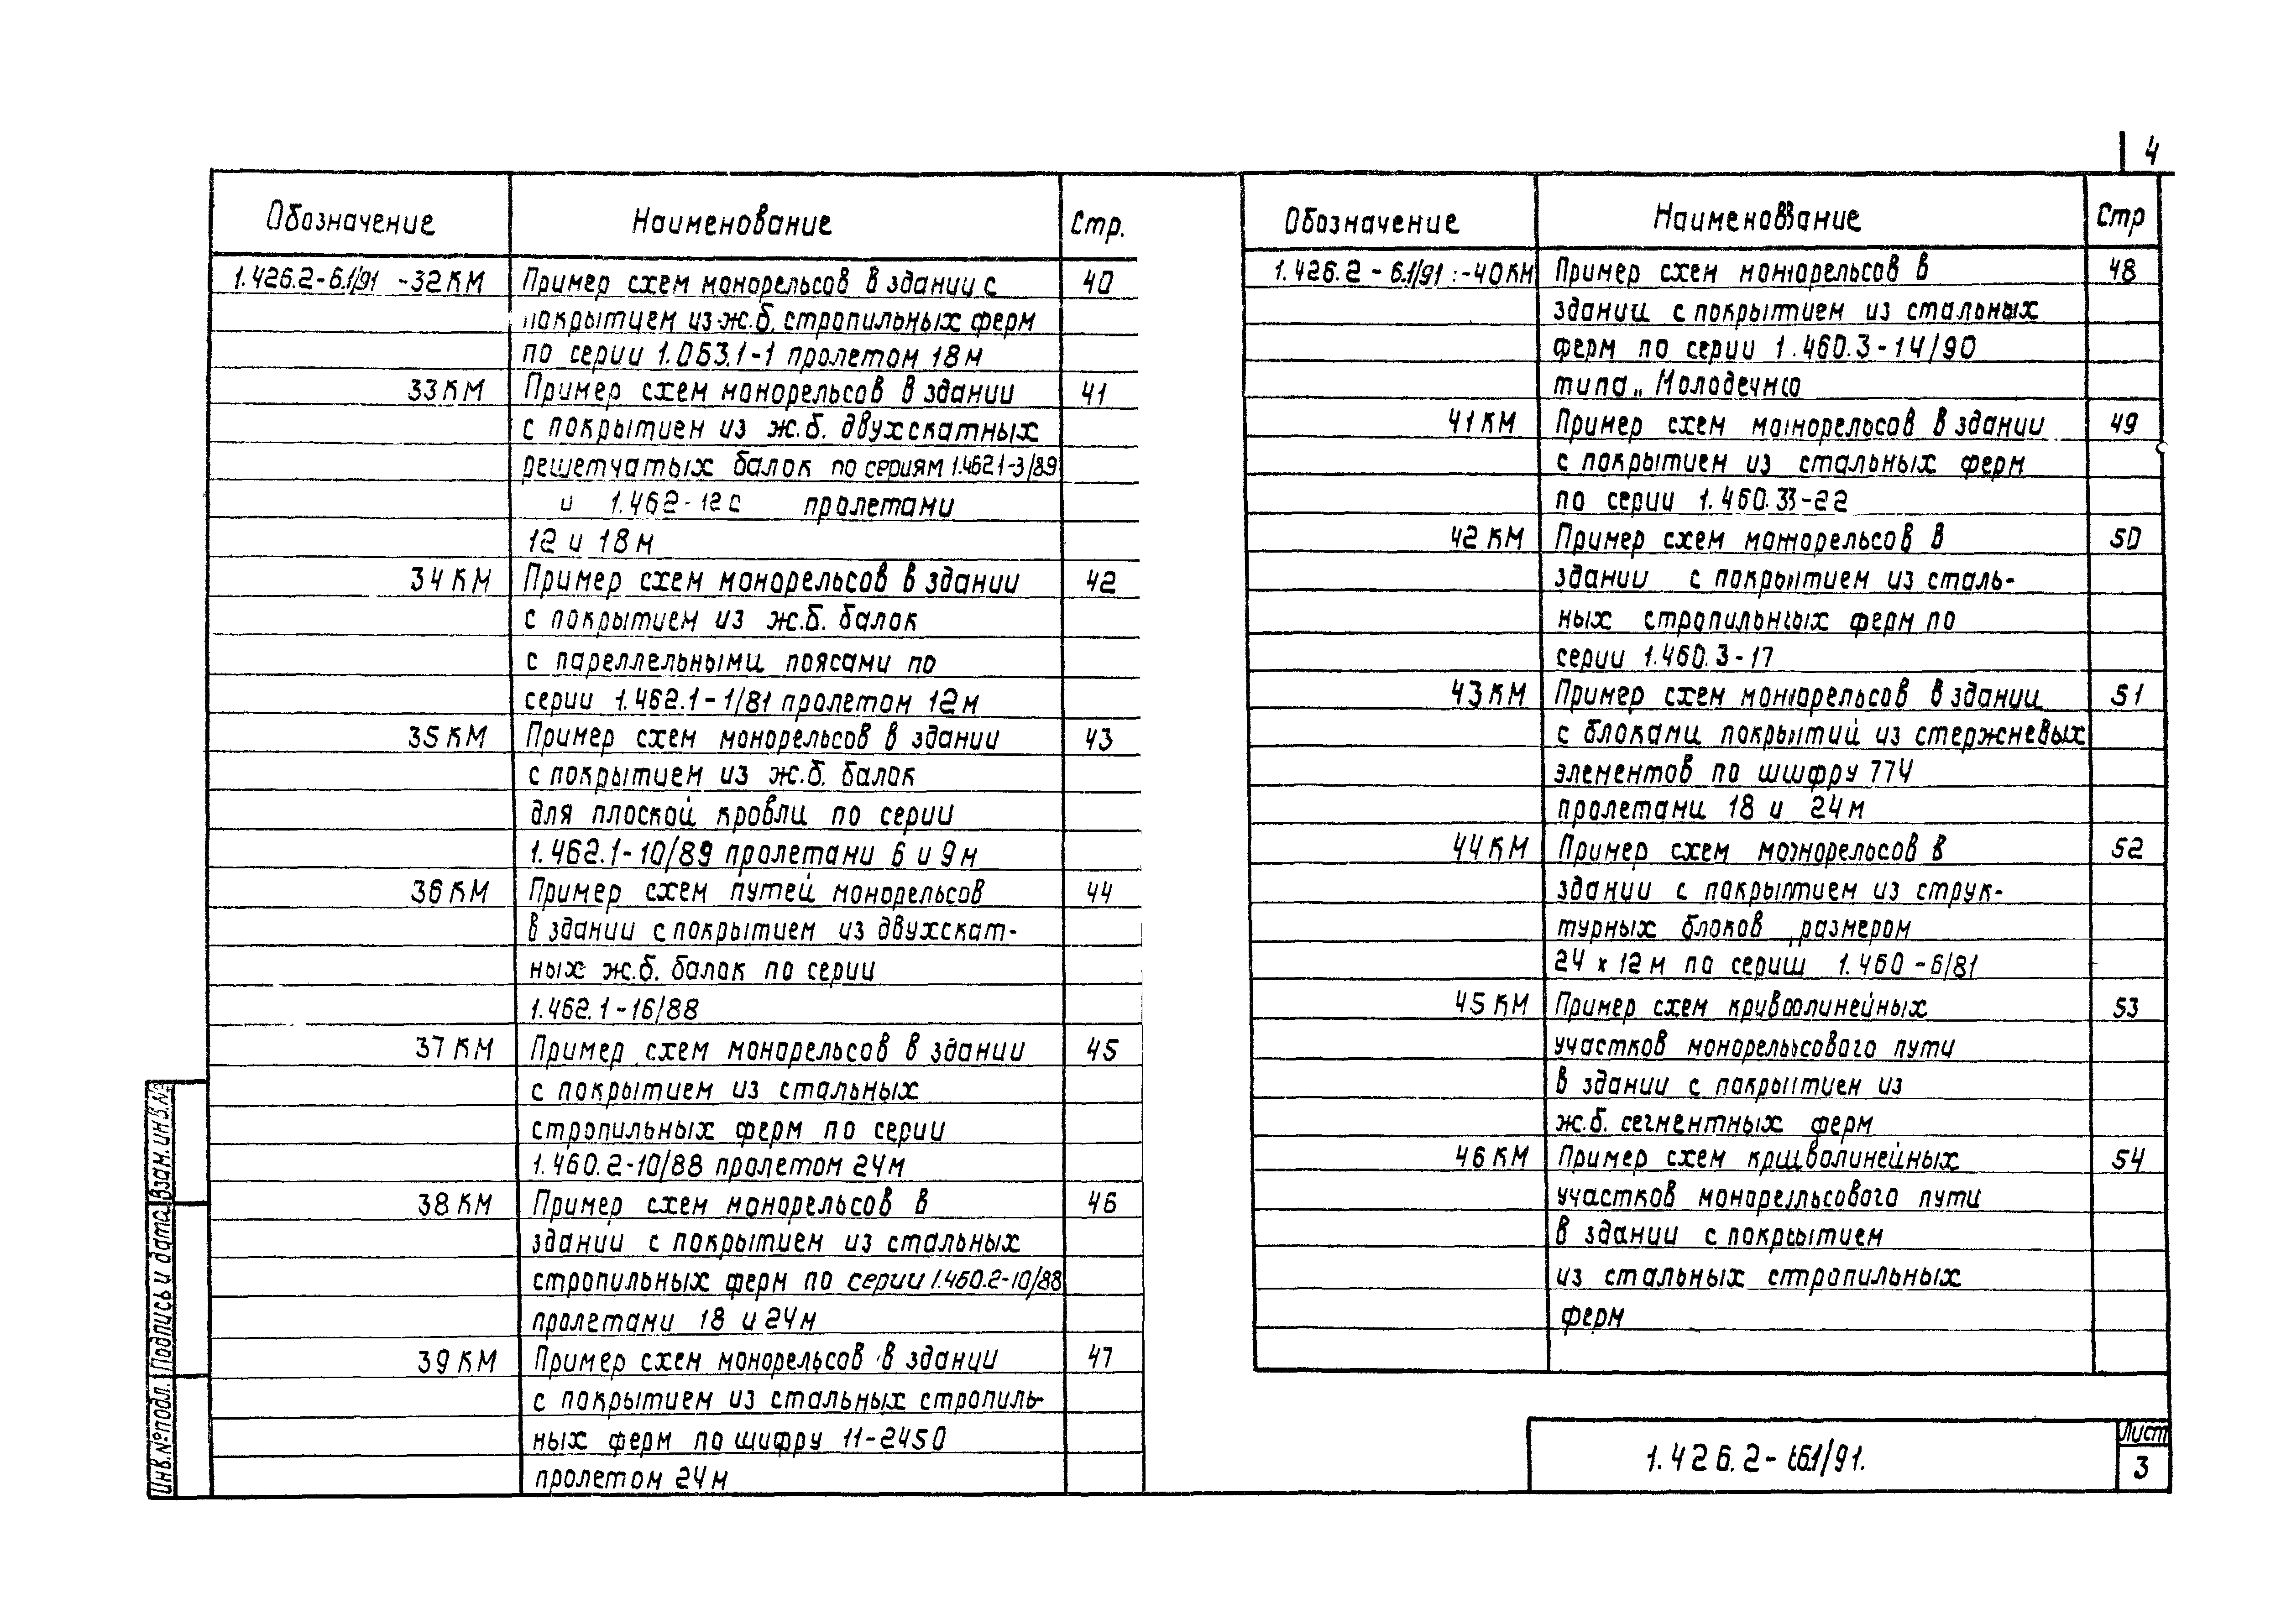 4
Обозначение Наименование Стр.
1.426.2-6.1/91 -32 КМ Пример схем монорельсов в здании с 40
покрытием из ж.б. стропильных ферм
по серии 1.063.1-1 пролетом 18 м
33 КМ Пример схем монорельсов в здании 41
с покрытием из ж.б. двухскатных
решетчатых балок по сериям 1.462.1-3/89
и 1.462-12с пролетами
12 и 18 м
34 КМ Пример схем монорельсов в здании 42
с покрытием из ж.б. балок
с пареллельными поясами по
серии 1.462.1-1/81 пролетом 12 м
35 КМ Пример схем монорельсов в здании 43
с покрытием из ж.б. балок
для плоской кровли по серии
1.462.1-10/89 пролетами 6 и 9 м
36 КМ Пример схем путей монорельсов 44
в здании с покрытием из двухскат-
ных ж.б. балок по серии
1.462.1-16/88
37 КМ Пример схем монорельсов в здании 45
с покрытием из стальных
стропильных ферм по серии
1.460.2-10/88 пролетом 24 м
38 КМ Пример схем монорельсов в 46
здании с покрытием из стальных
стропильных ферм по серии 1.460.2-10/88
пролетами 18 и 24 м
39 КМ Пример схем монорельсов в здании 47
с покрытием из стальных стропиль-
ных ферм по шифру 11-2450
пролетом 24 м
Обозначение Наименование Стр
1.426.2-6.1/91 -40 КМ Пример схем монорельсов в 48
здании с покрытием из стальных
ферм по серии 1.460.3-14/90
типа „Молодечно
41 КМ Пример схем монорельсов в здании 49
с покрытием из стальных ферм
по серии 1.460.33-22
42 КМ Пример схем монорельсов в 50
здании с покрытием из сталь-
ных стропильных ферм по
серии 1.460.3-17
43 КМ Пример схем монорельсов в здании 51
с блоками покрытий из стержневых
элементов по шифру 774
пролетами 18 и 24 м
44 КМ Пример схем монорельсов в 52
здании с покрытием из струк-
турных блоков размером
24 х 12 м по серии 1.460-6/81
45 КМ Пример схем криволинейных 53
участков монорельсового пути
в здании с покрытием из
ж.б. сегментных ферм
46 КМ Пример схем криволинейных 54
участков монорельсового пути
в здании с покрытием
из стальных стропильных
ферм
Взам. инв. №
Подпись и дата
Инв. № подл.
1.426.2-6.1/91.
Лист
3